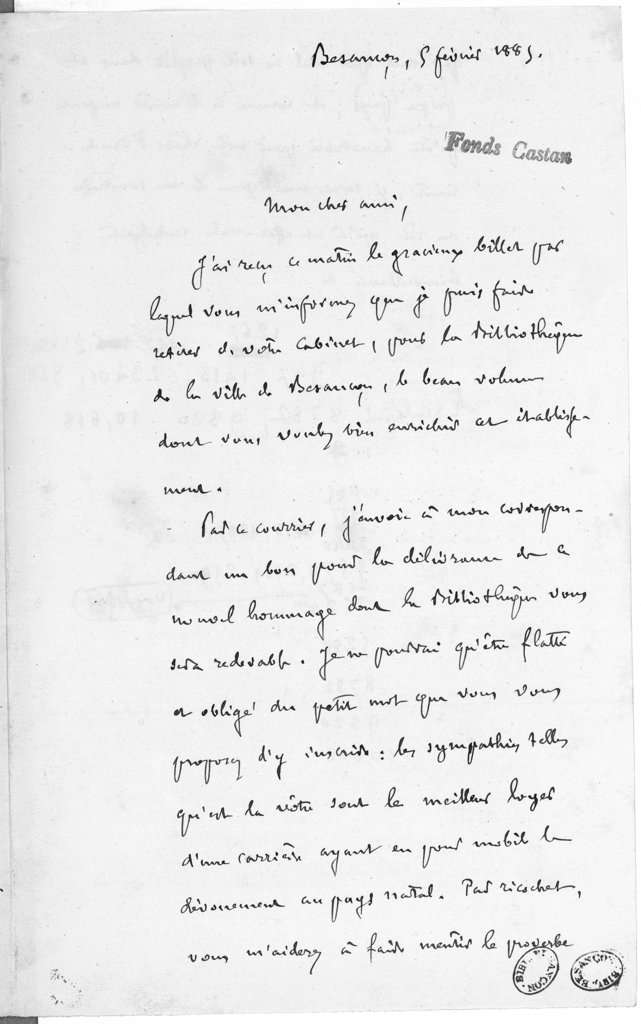 Besançon, 5 février 1885.
Fonds Castan
Mon cher ami,
J'ai reçu ce matin le gracieux billet par
lequel vous m'informez que je puis faire
retirer de votre cabinet, pour la Bibliothèque
de la ville de Besançon, le beau volume
dont vous voulez bien enrichir cet établisse-
ment.
Par ce courrier, j'envoie à mon correspon-
dant un bon pour la délivrance de ce
nouvel hommage dont la Bibliothèque vous
sera redevable. Je ne pourrai qu'être flatté
et obligé du petit mot que vous vous
proposez d'y inscrire : les sympathies telles
qu'est la vôtre sont le meilleur loyer
d'une carrière ayant eu pour mobile le
dévouement au pays natal. Par ricochet,
vous m'aiderez à faire mentir le proverbe
BESANÇON BIBL.